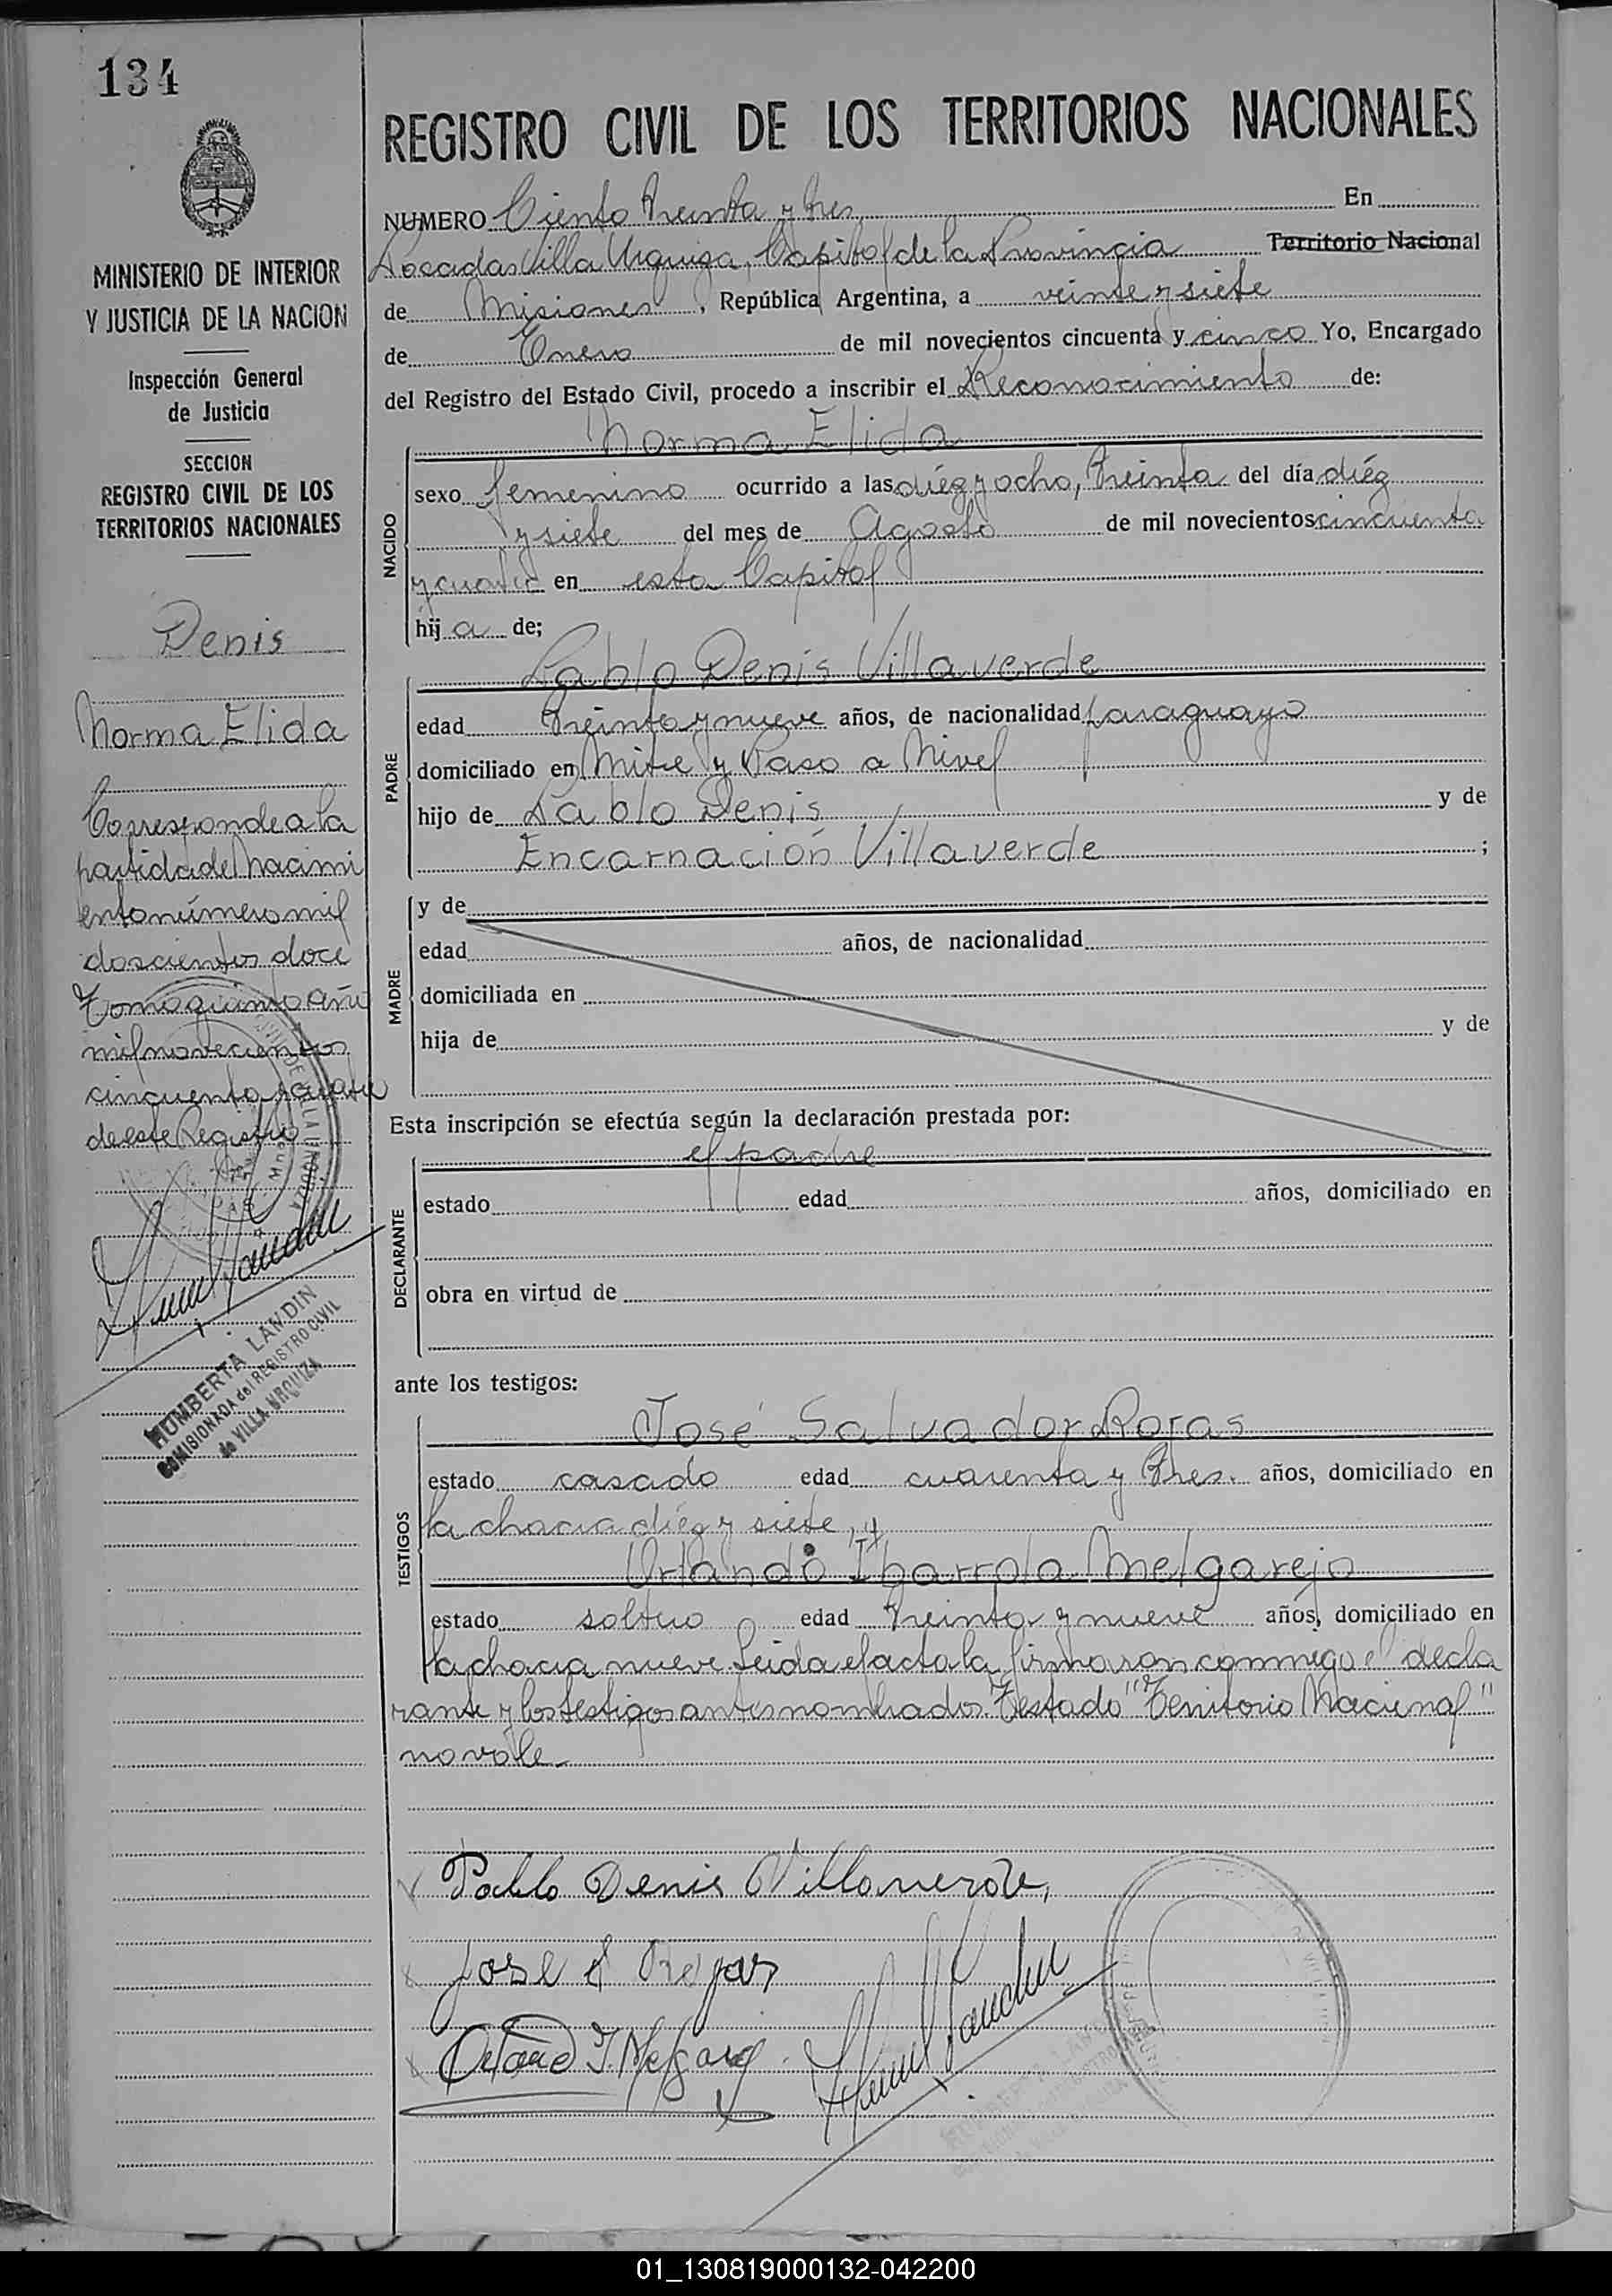 134
MINISTERIO DE INTERIOR
Y JUSTICIA DE LA NACION
Inspección General
de Justicia
SECCION
REGISTRO CIVIL DE LOS
TERRITORIOS NACIONALES
Denis
Norma Elida
Corresponde a la
partida de Nacimi
ento número mil
doscientos doce
Tomo quinto año
mil novecientos
cincuenta y cuatro
de este Registro
HUMBERTA LANDIN
COMISIONADA del REGISTRO CIVIL
de VILLA URQUIZA
REGISTRO CIVIL DE LOS TERRITORIOS NACIONALES
NUMERO Ciento treinta y tres En
Posadas Villa Urquiza, Capital de la Provincia Territorio Nacional
de Misiones, República Argentina, a veinte y siete
de Enero de mil novecientos cincuenta y cinco Yo, Encargado
del Registro del Estado Civil, procedo a inscribir el Reconocimiento de:
Norma Elida
NACIDO
sexo femenino ocurrido a las diéz y ocho, treinta del día diéz
y siete del mes de Agosto de mil novecientos cincuenta
y cuatro en esta Capital
hija de;
Pablo Denis Villaverde
PADRE
edad treinta y nueve años, de nacionalidad paraguayo
domiciliado en Mitre y Paso a Nivel
hijo de Pablo Denis y de
Encarnación Villaverde ;
MADRE
y de
edad años, de nacionalidad
domiciliada en
hija de y de
Esta inscripción se efectúa según la declaración prestada por:
el padre
DECLARANTE
estado edad años, domiciliado en
obra en virtud de
ante los testigos:
José Salvador Rojas
TESTIGOS
estado casado edad cuarenta y tres. años, domiciliado en
la chacra diéz y siete, y
Orlando Ibarrola Melgarejo
estado soltero edad treinta y nueve años, domiciliado en
la chacra nueve Leida el acta la firmaron conmigo el decla
rante y los testigos antes nombrados. Testado "Territorio Nacional"
no vale.
Pablo Denis Villaverde,
Jose S Rojas
Orlando I. Melgarejo
01_130819000132-042200